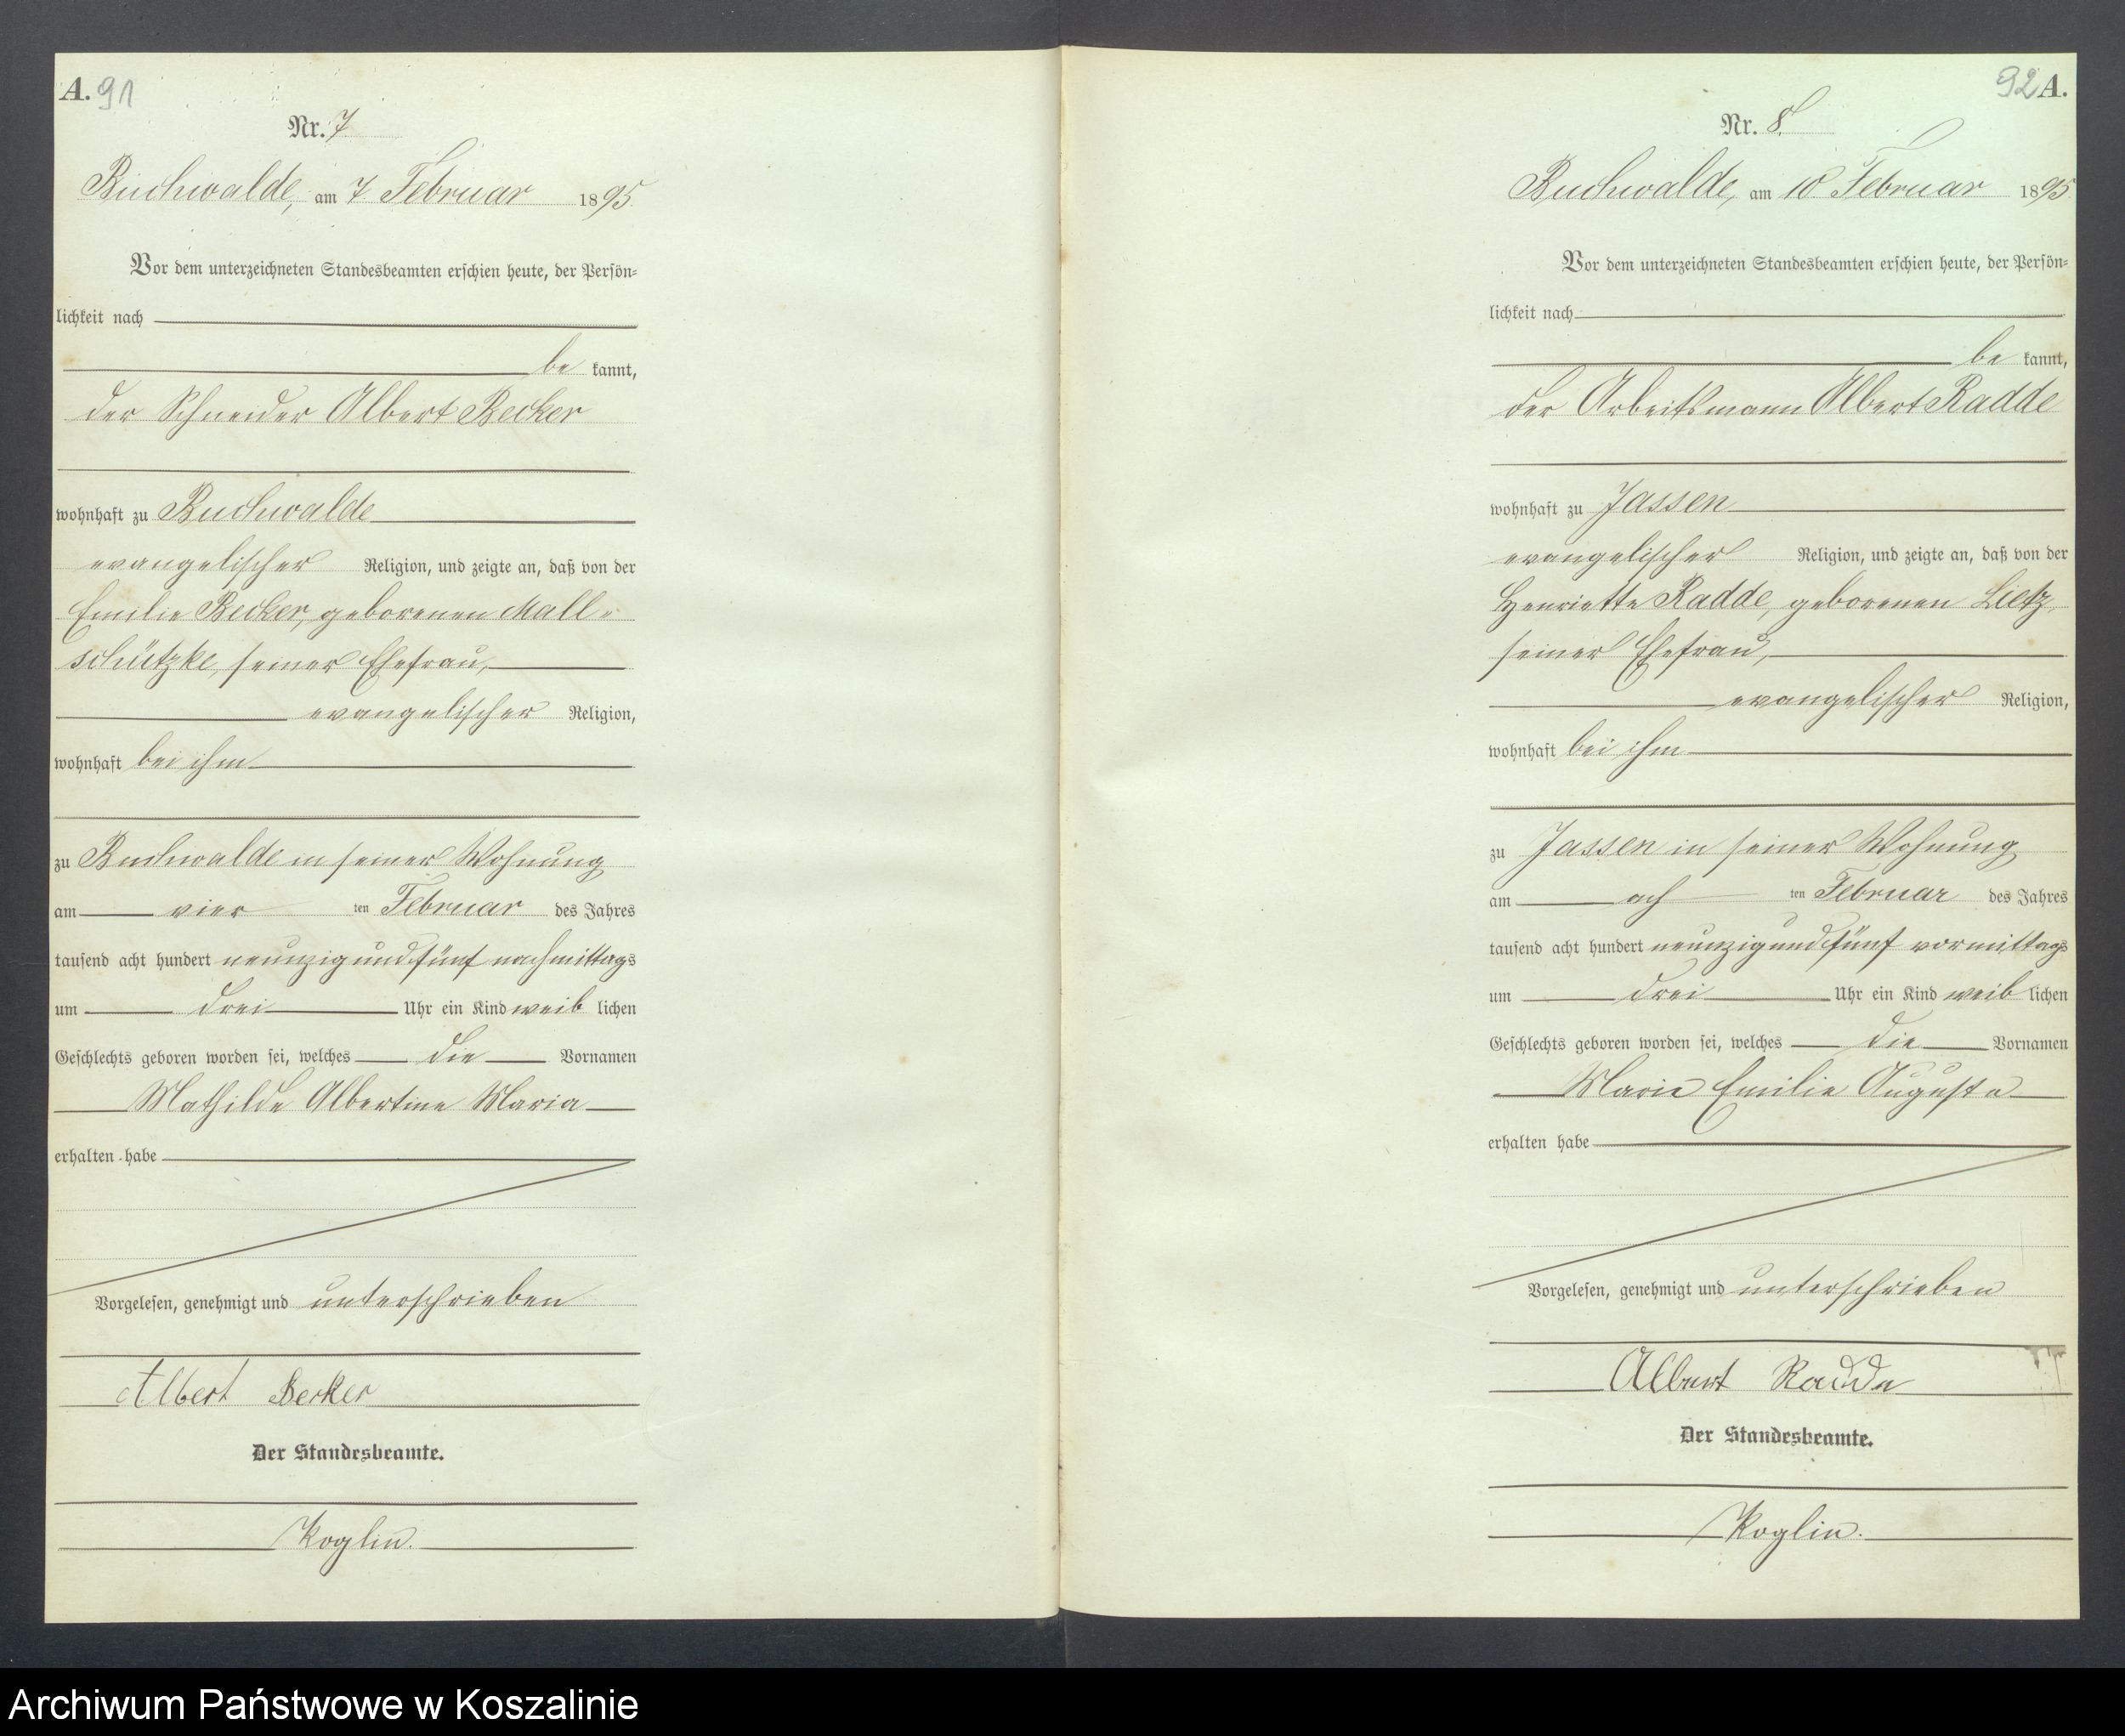 A. 91
Nr. 7
Buchwalde, am 7 Februar 1895
Vor dem unterzeichneten Standesbeamten erschien heute, der Persön=
lichkeit nach
be kannt,
der Schneider Albert Becker
wohnhaft zu Buchwalde
evangelischer Religion, und zeigte an, daß von der
Emilie Becker, geborenen Mall=
schützke, seiner Ehefrau,
evangelischer Religion,
wohnhaft bei ihm
zu Buchwalde in seiner Wohnung
am vier ten Februar des Jahres
tausend acht hundert neunzig und fünf nachmittags
um drei Uhr ein Kind weib lichen
Geschlechts geboren worden sei, welches die Vornamen
Mathilde Albertine Maria
erhalten habe
Vorgelesen, genehmigt und unterschrieben
Albert Becker
Der Standesbeamte.
Koglin.
92 A.
Nr. 8.
Buchwalde, am 10. Februar 1895.
Vor dem unterzeichneten Standesbeamten erschien heute, der Persön=
lichkeit nach
be kannt,
der Arbeitsmann Albert Radde
wohnhaft zu Jassen
evangelischer Religion, und zeigte an, daß von der
Henriette Radde, geborenen Lietz,
seiner Ehefrau,
evangelischer Religion,
wohnhaft bei ihm
zu Jassen in seiner Wohnung
am ach ten Februar des Jahres
tausend acht hundert neunzig und fünf vormittags
um drei Uhr ein Kind weib lichen
Geschlechts geboren worden sei, welches die Vornamen
Marie Emilie Auguste
erhalten habe
Vorgelesen, genehmigt und unterschrieben
Albert Radde
Der Standesbeamte.
Koglin.
Archiwum Państwowe w Koszalinie